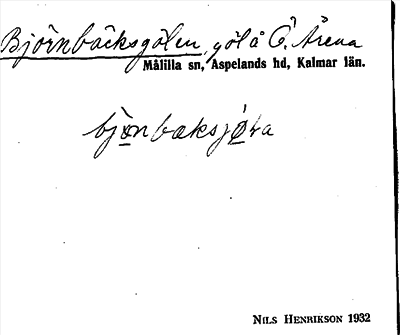 Björnbäcksgölen, göl å Ö. Årena
Målilla sn, Aspelands hd, Kalmar län.
bjɷnbæksjø̀la
NILS HENRIKSON 1932